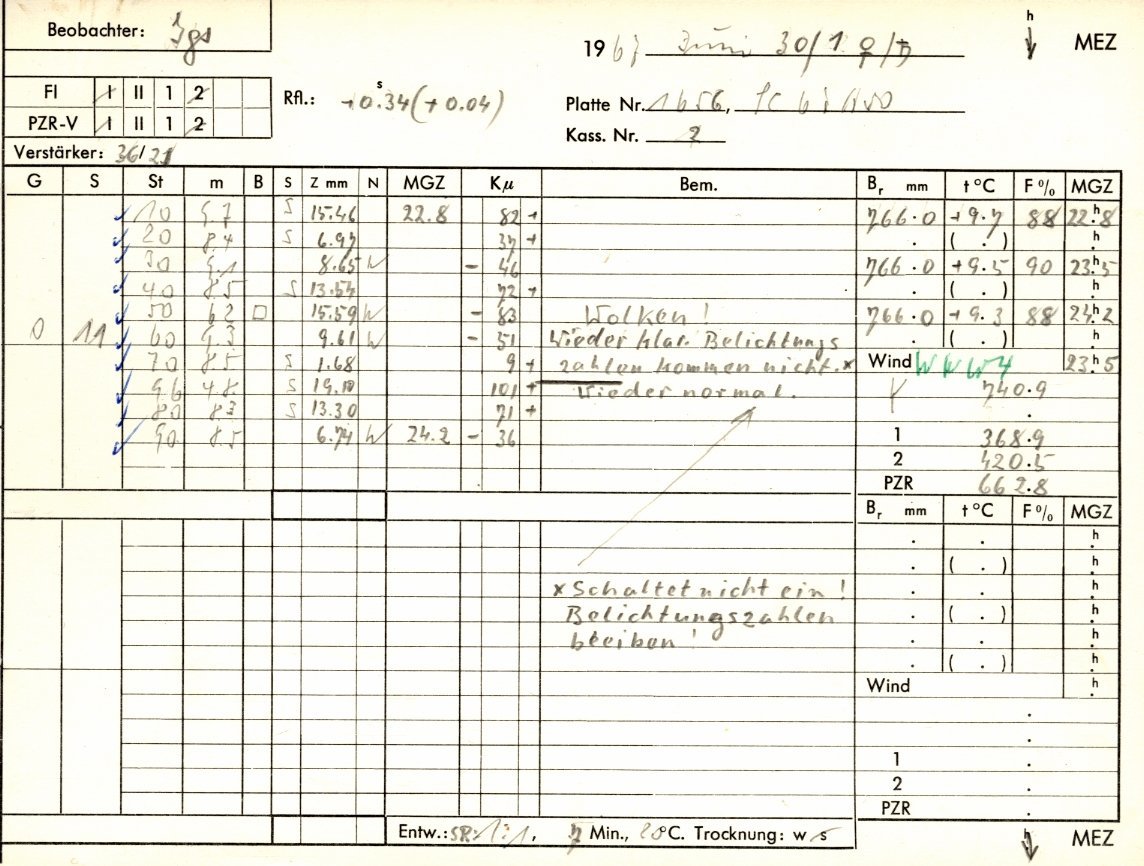 Beobachter: Jgs
h
1967 Juni 30/1 ♀/♄ MEZ
FI I II 1 2
s
Rfl.: +0.34(+0.04)
Platte Nr. 1656,
PZR-V I II 1 2
Kass. Nr. 2
Verstärker: 36/21
G S St m B S Z mm N MGZ Kµ Bem. Br mm t °C F % MGZ
10 9.7 S 15.46 22.8 82 + 766.0 +9.7 88 22h.8
20 8.4 S 6.97 37 + . ( . ) h.
30 9.1 8.65 N - 46 766.0 +9.5 90 23h.5
40 8.5 S 13.54 72 + . ( . ) h.
50 6.2 □ 15.59 N - 83 Wolken! 766.0 +9.3 88 24h.2
0 11 60 9.3 9.61 N - 51 Wieder klar. Belichtungs . ( . ) h.
70 8.5 S 1.68 9 + zahlen kommen nicht. x Wind WNW4 23h.5
96 4.8 S 19.10 101 + Wieder normal. 740.9
80 8.3 S 13.30 71 + .
90 8.5 6.74 N 24.2 - 36 1 368.9
2 420.5
PZR 662.8
Br mm t °C F % MGZ
. . h.
. ( . ) h.
x Schaltet nicht ein! . . h.
Belichtungszahlen . ( . ) h.
bleiben! . . h.
. ( . ) h.
Wind h.
.
.
1 .
2 .
PZR .
Entw.: SR 1:1, 7 Min., 20°C. Trocknung: w s MEZ